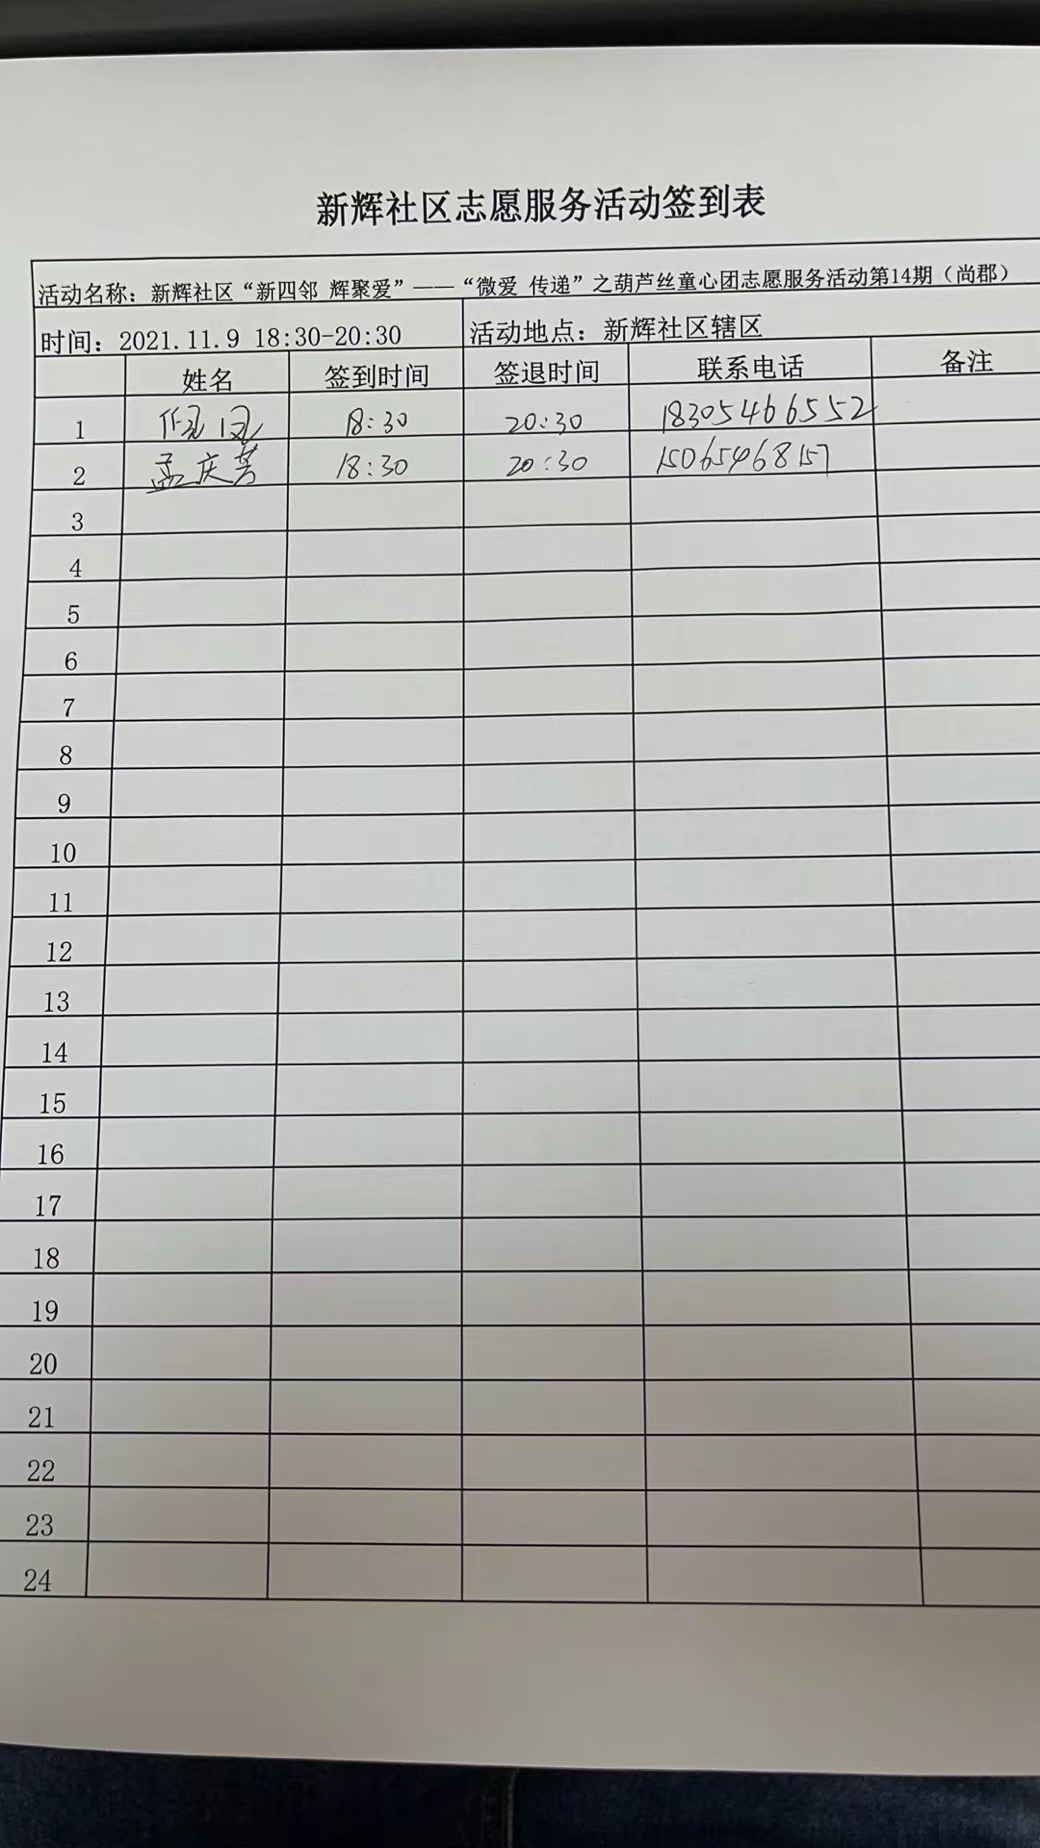 新辉社区志愿服务活动签到表
活动名称：新辉社区“新四邻 辉聚爱”——“微爱 传递”之葫芦丝童心团志愿服务活动第14期（尚郡）
时间：2021.11.9 18:30-20:30 活动地点：新辉社区辖区
姓名 签到时间 签退时间 联系电话 备注
1 18:30 20:30 18305466552
2 孟庆芳 18:30 20:30 15065468157
3
4
5
6
7
8
9
10
11
12
13
14
15
16
17
18
19
20
21
22
23
24